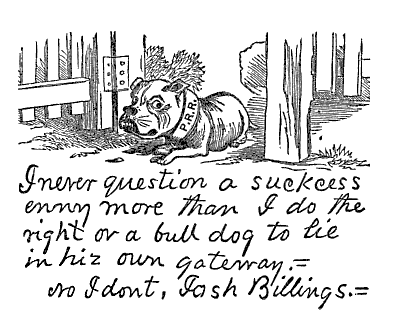 P.R.R.
I never question a suckcess
enny more than I do the
right ov a bull dog to lie
in hiz own gateway.=
No I dont, Josh Billings.=